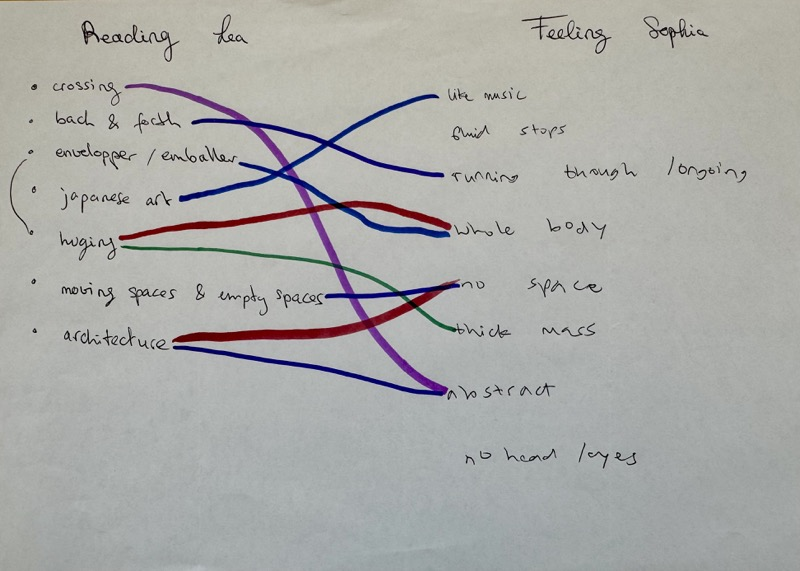 Reading Lea
crossing
back & forth
envelopper / emballer
japanese art
huging
moving spaces & empty spaces
architecture
Feeling Sophia
like music
fluid stops
running through / ongoing
whole body
no space
thick mass
abstract
no head / eyes